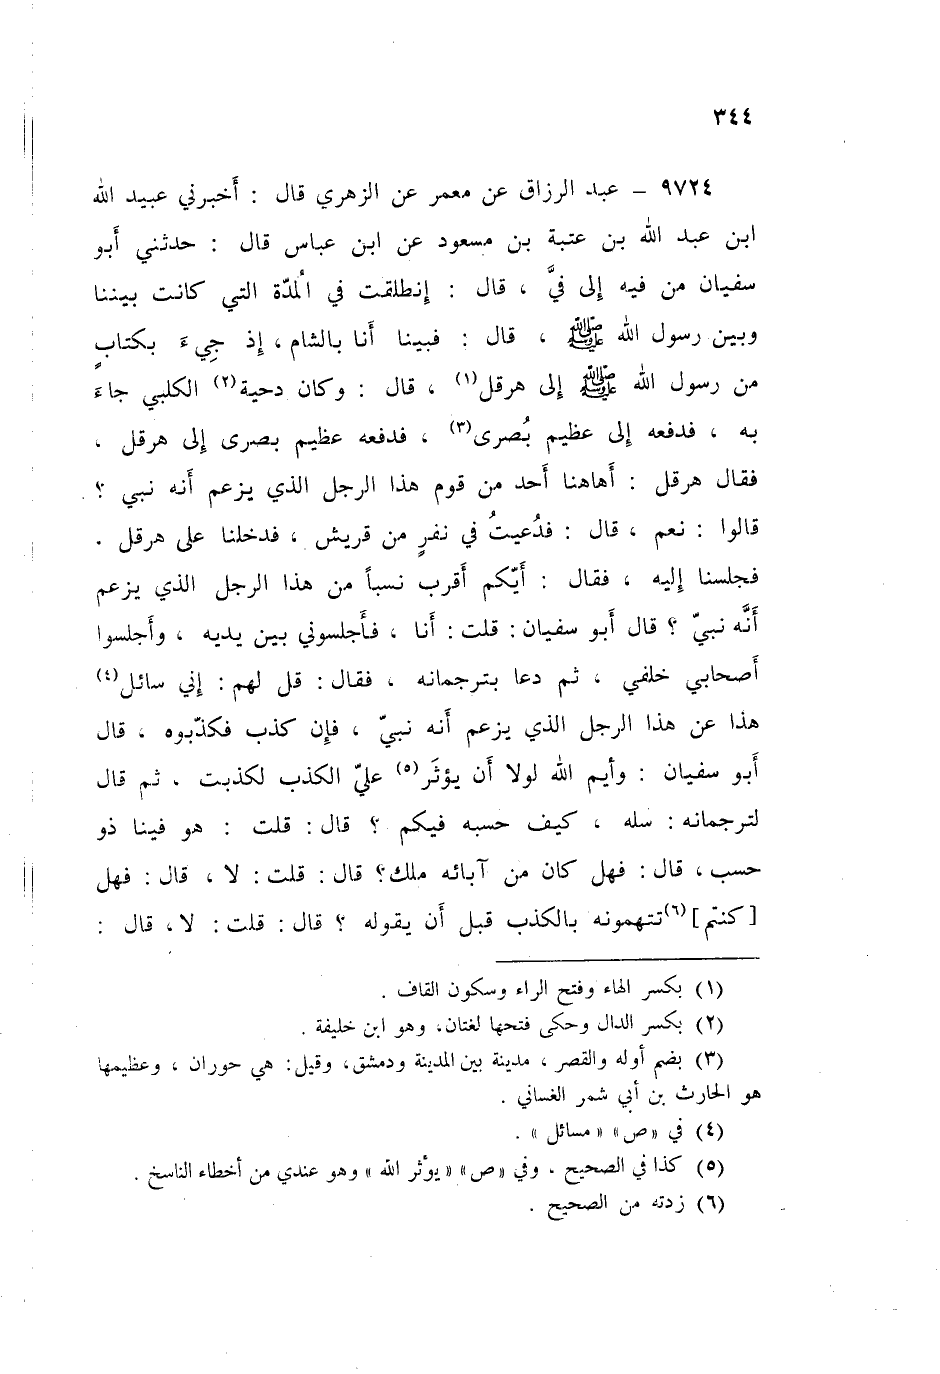 ٣٤٤
٩٧٢٤ – عبد الرزاق عن معمر عن الزهري قال : أَخبرني عبيد الله
ابن عبد الله بن عتبة بن مسعود عن ابن عباس قال : حدثني أَبو
سفيان من فيه إلى فيَّ ، قال : إنطلقت في المُدّة التي كانت بيننا
وبين رسول الله ﷺ ، قال : فبينا أَنا بالشام ، إِذ جِيءَ بكتابٍ
من رسول الله ﷺ إلى هرقل(١) ، قال : وكان دحية(٢) الكلبي جاءَ
به ، فدفعه إلى عظيم بُصرى(٣) ، فدفعه عظيم بصرى إلى هرقل ،
فقال هرقل : أَهاهنا أَحد من قوم هذا الرجل الذي يزعم أَنه نبي ؟
قالوا : نعم ، قال : فدُعيتُ في نفرٍ من قريش ، فدخلنا على هرقل .
فجلسنا إليه ، فقال : أَيّكم أَقرب نسباً من هذا الرجل الذي يزعم
أَنَّه نبيّ ؟ قال أَبو سفيان : قلت : أَنا ، فأَجلسوني بين يديه ، وأَجلسوا
أَصحابي خلفي ، ثم دعا بترجمانه ، فقال : قل لهم : إني سائل(٤)
هذا عن هذا الرجل الذي يزعم أَنه نبيّ ، فإن كذب فكذّبوه ، قال
أَبو سفيان : وأَيم الله لولا أَن يؤثَر(٥) عليّ الكذب لكذبت . ثم قال
لترجمانه : سله ، كيف حسبه فيكم ؟ قال : قلت : هو فينا ذو
حسب ، قال : فهل كان من آبائه ملك ؟ قال : قلت : لا ، قال : فهل
[ كنتم ](٦) تتهمونه بالكذب قبل أَن يقوله ؟ قال : قلت : لا ، قال :
(١) بكسر الهاء وفتح الراء وسكون القاف .
(٢) بكسر الدال وحكى فتحها لغتان، وهو ابن خليفة .
(٣) بضم أوله والقصر ، مدينة بين المدينة ودمشق، وقيل: هي حوران ، وعظيمها
هو الحارث بن أبي شمر الغساني .
(٤) في «ص» « مسائل » .
(٥) كذا في الصحيح . وفي «ص» « يؤثر الله » وهو عندي من أخطاء الناسخ .
(٦) زدته من الصحيح .